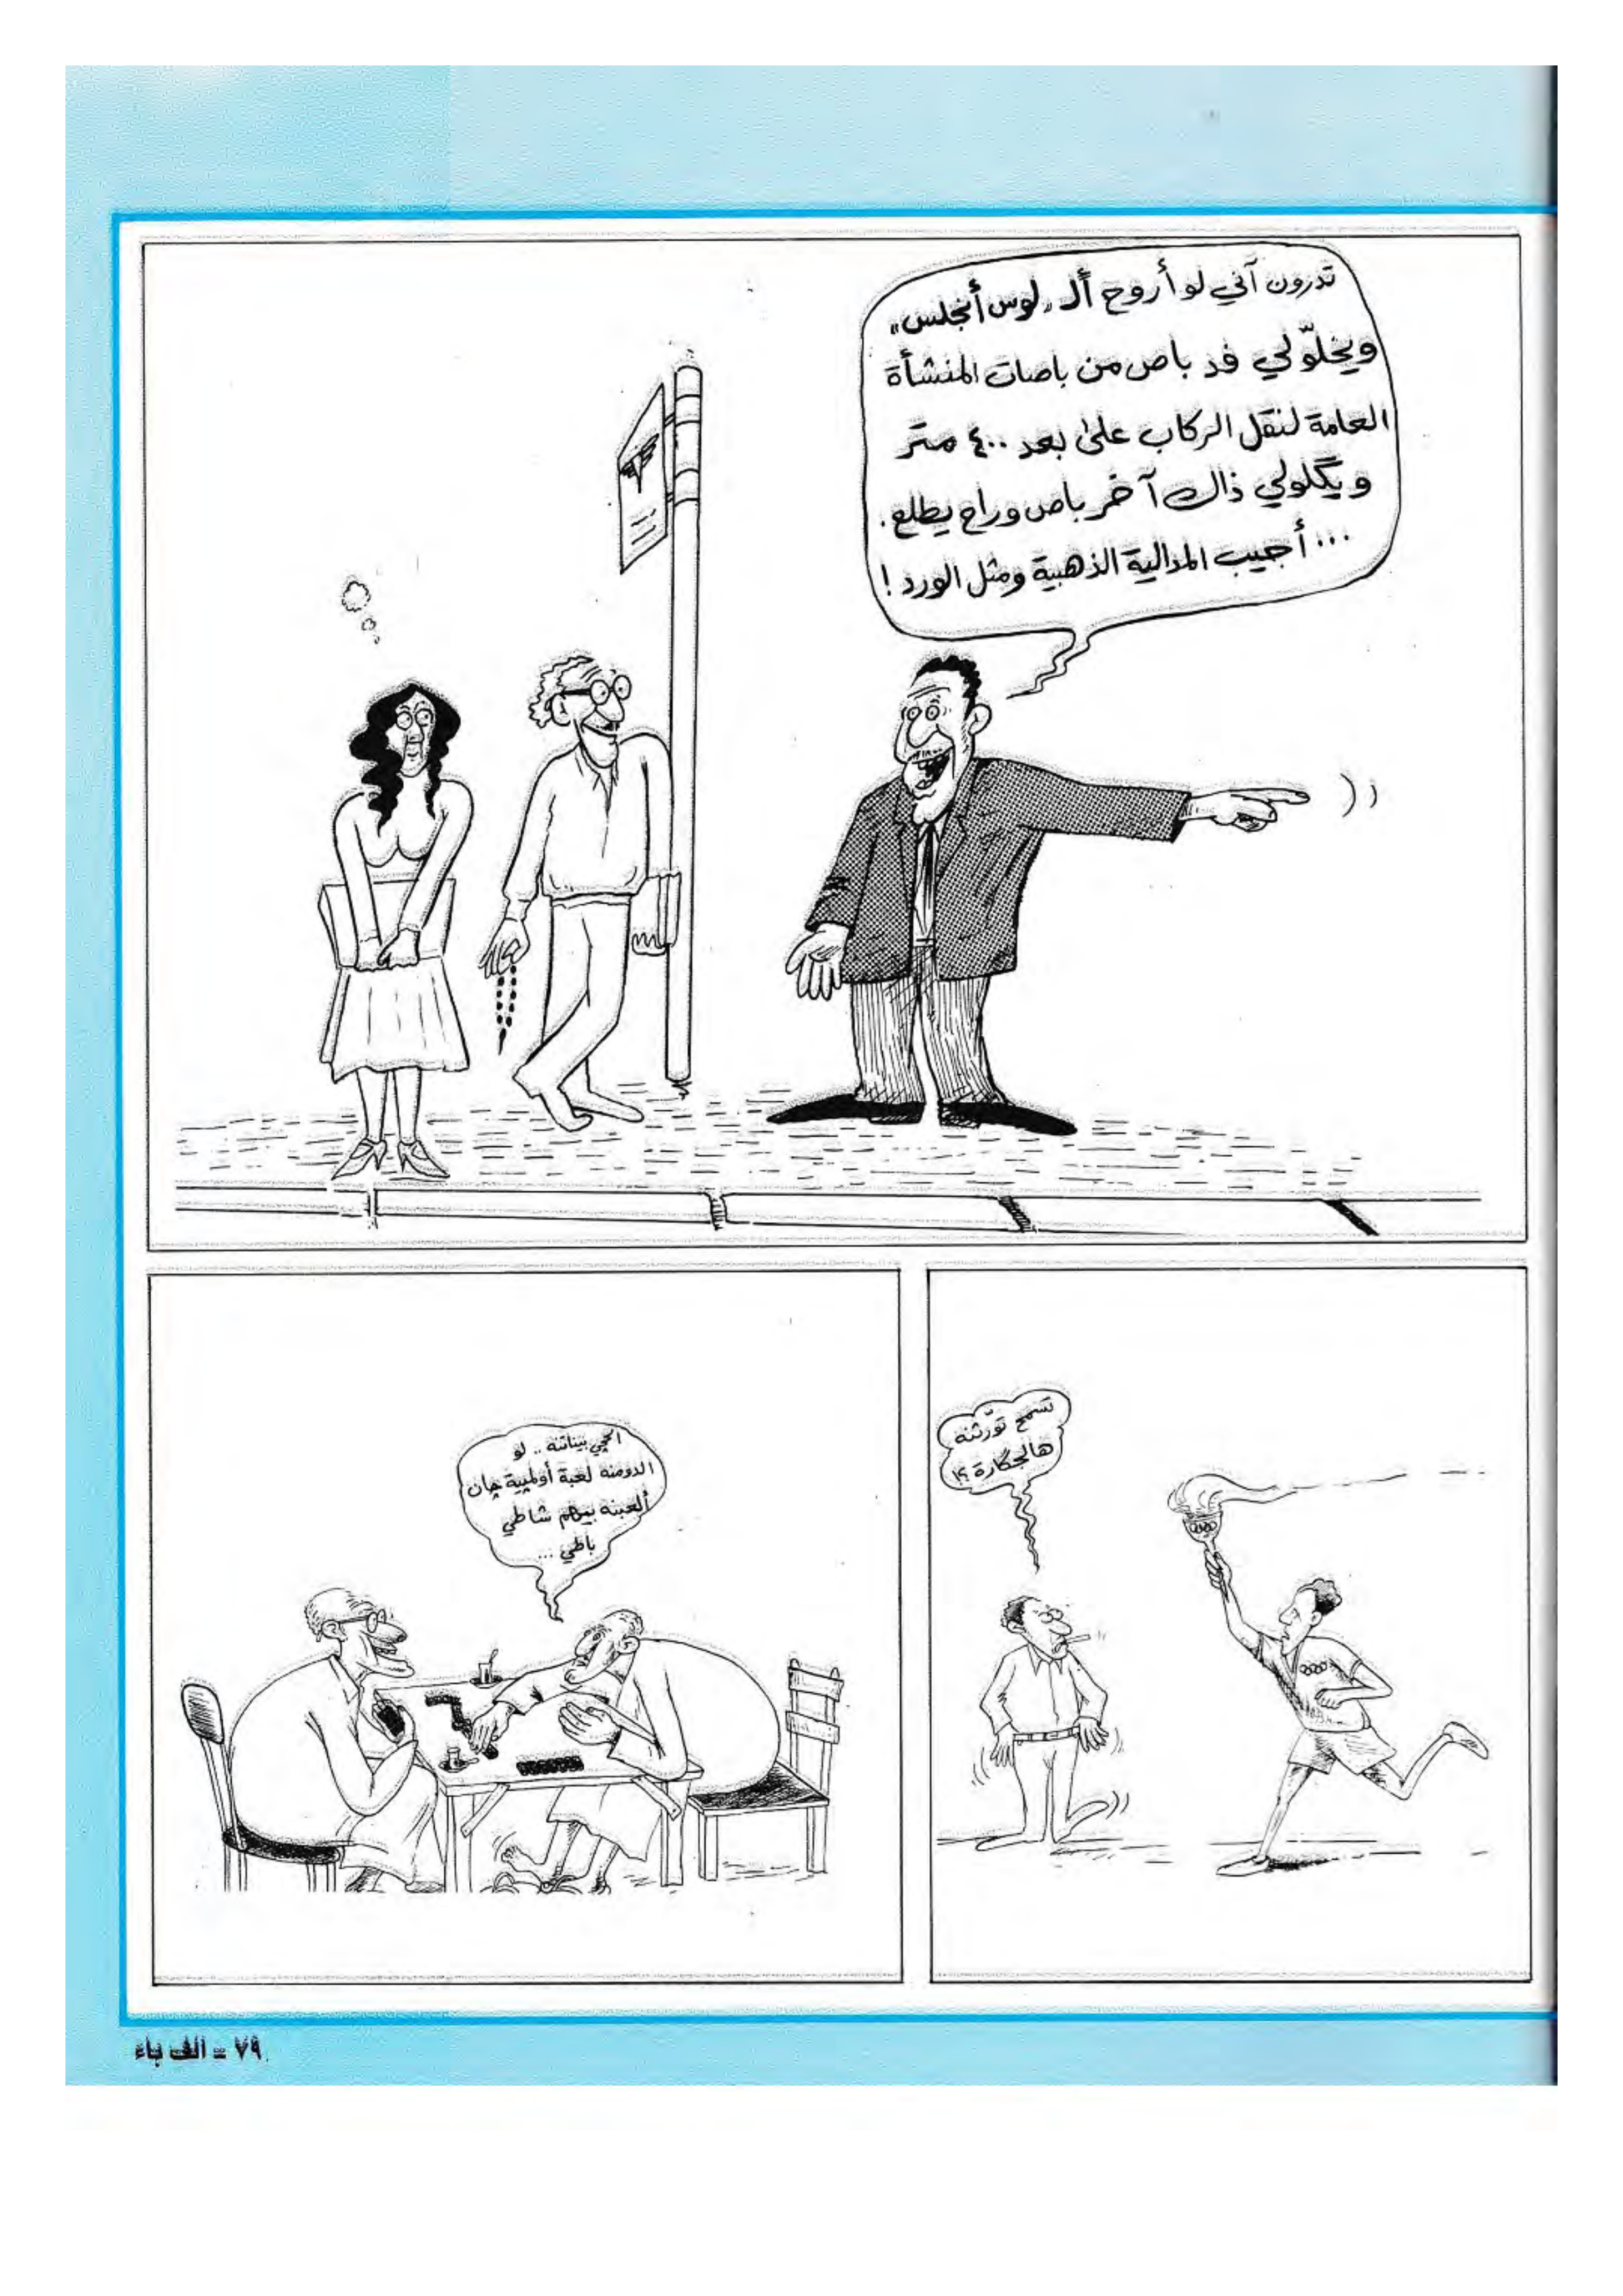 تدرون آني لو أروح أل "لوس أنجلس"
ويخلّولي فد باص من باصات المنشأة
العامة لنقل الركاب على بعد ٤٠٠ متر
ويگلولي ذاك آخر باص وراح يطلع.
... أجيب المدالية الذهبية ومثل الورد!
تسمح تورّثنه
هالجگارة؟!
الحچي بيناتنه .. لو
الدومنه لعبة أولمپية چان
ألعبنه بيهم شاطي
باطي ...
٧٩ - الف باء